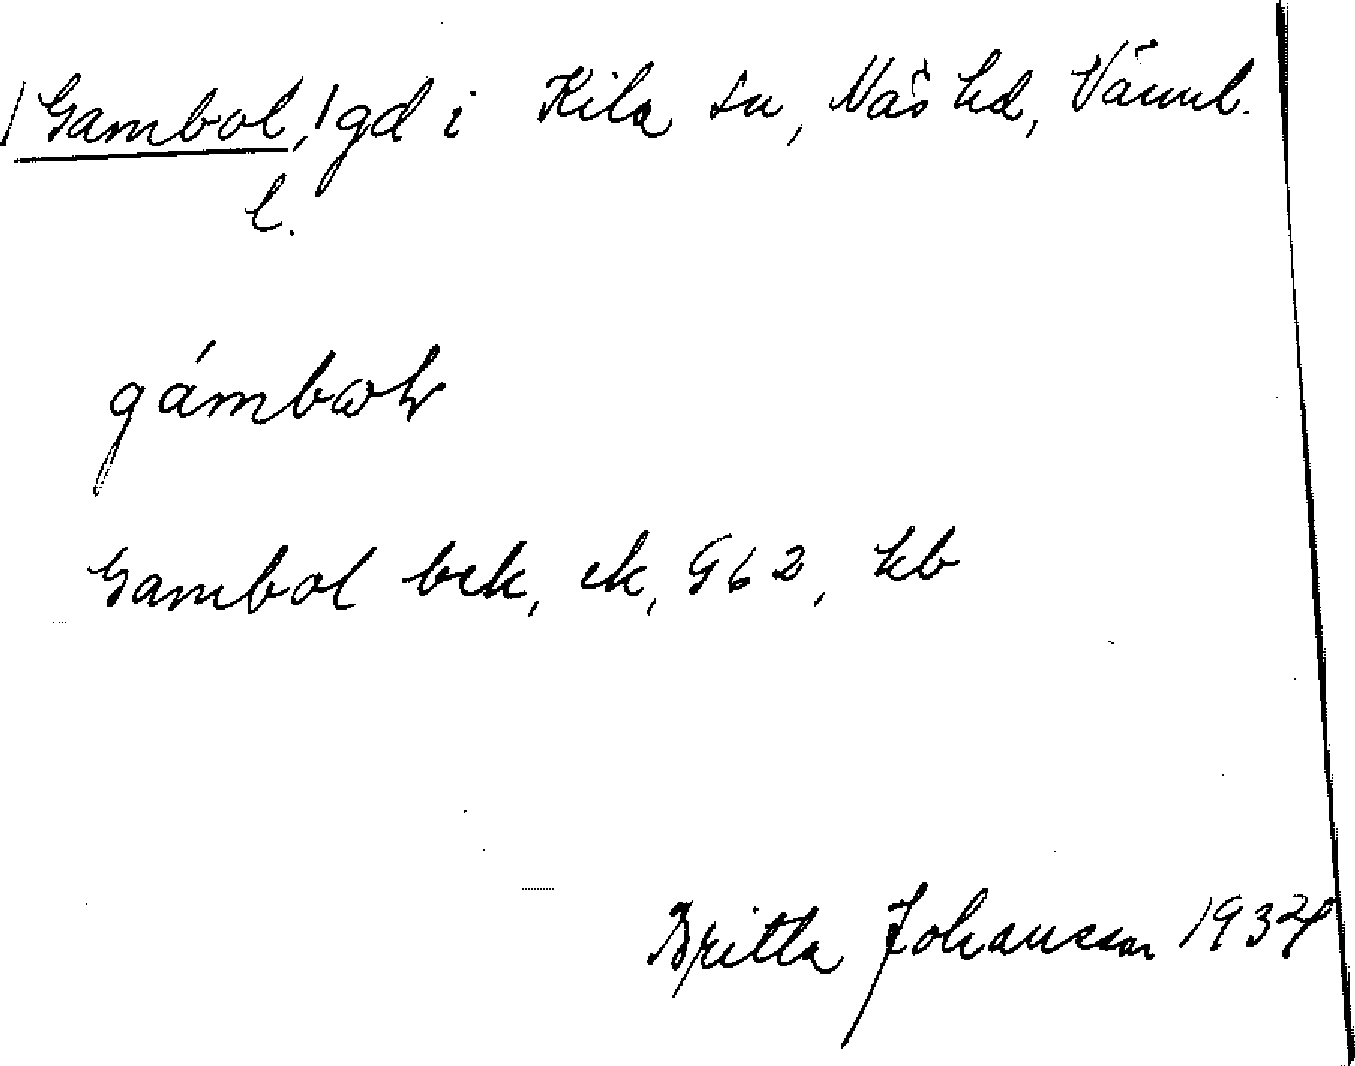 /Gambol,/ gd i Kila sn, Näs hd, Värml.
l.
gámbωɫ
Gambol bek, ek, G62, kb
Britta Johansson 1934